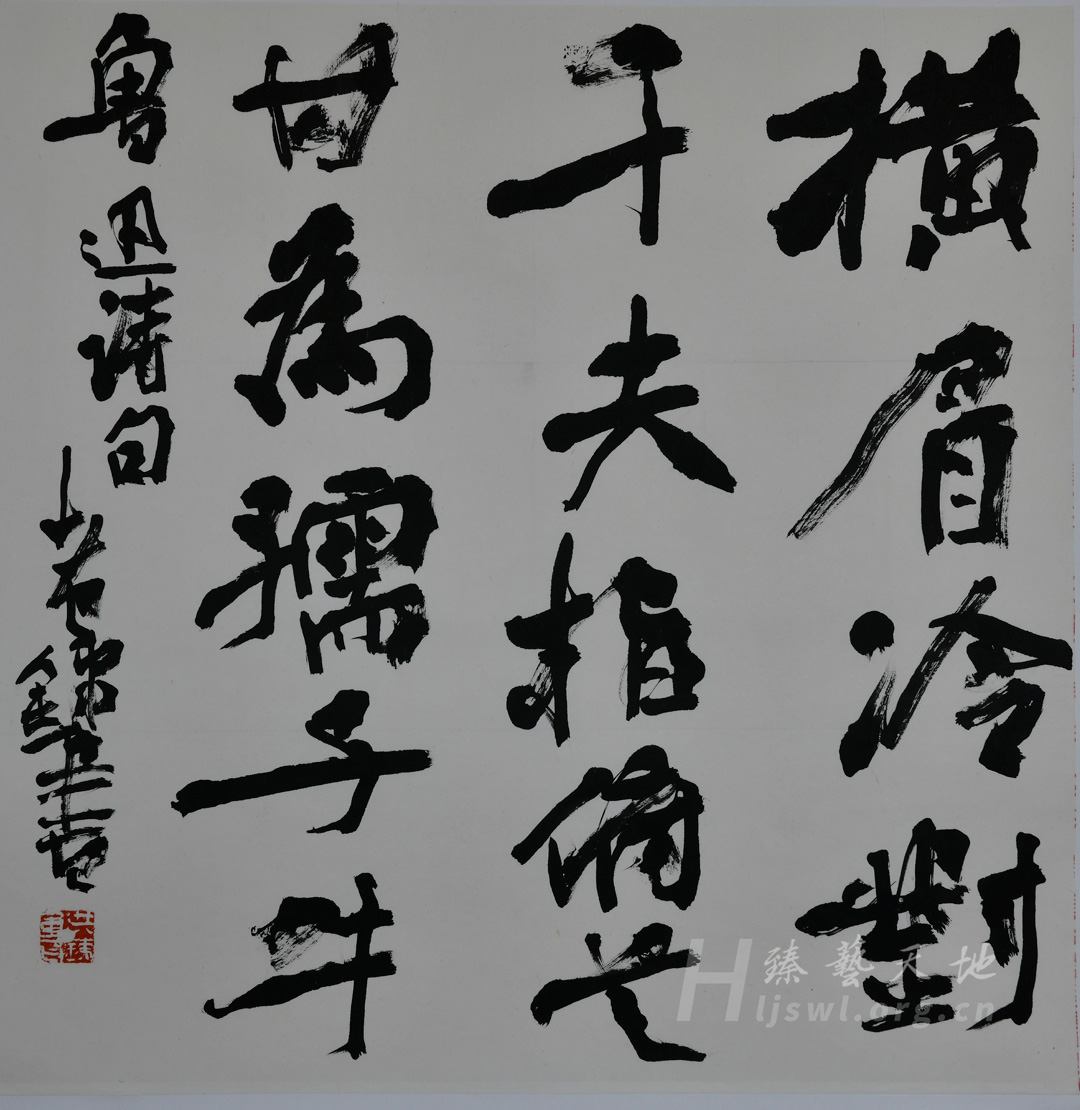 横眉冷對
千夫指俯首
甘為孺子牛
魯迅詩句
臻藝天地
Hljswl.org.cn